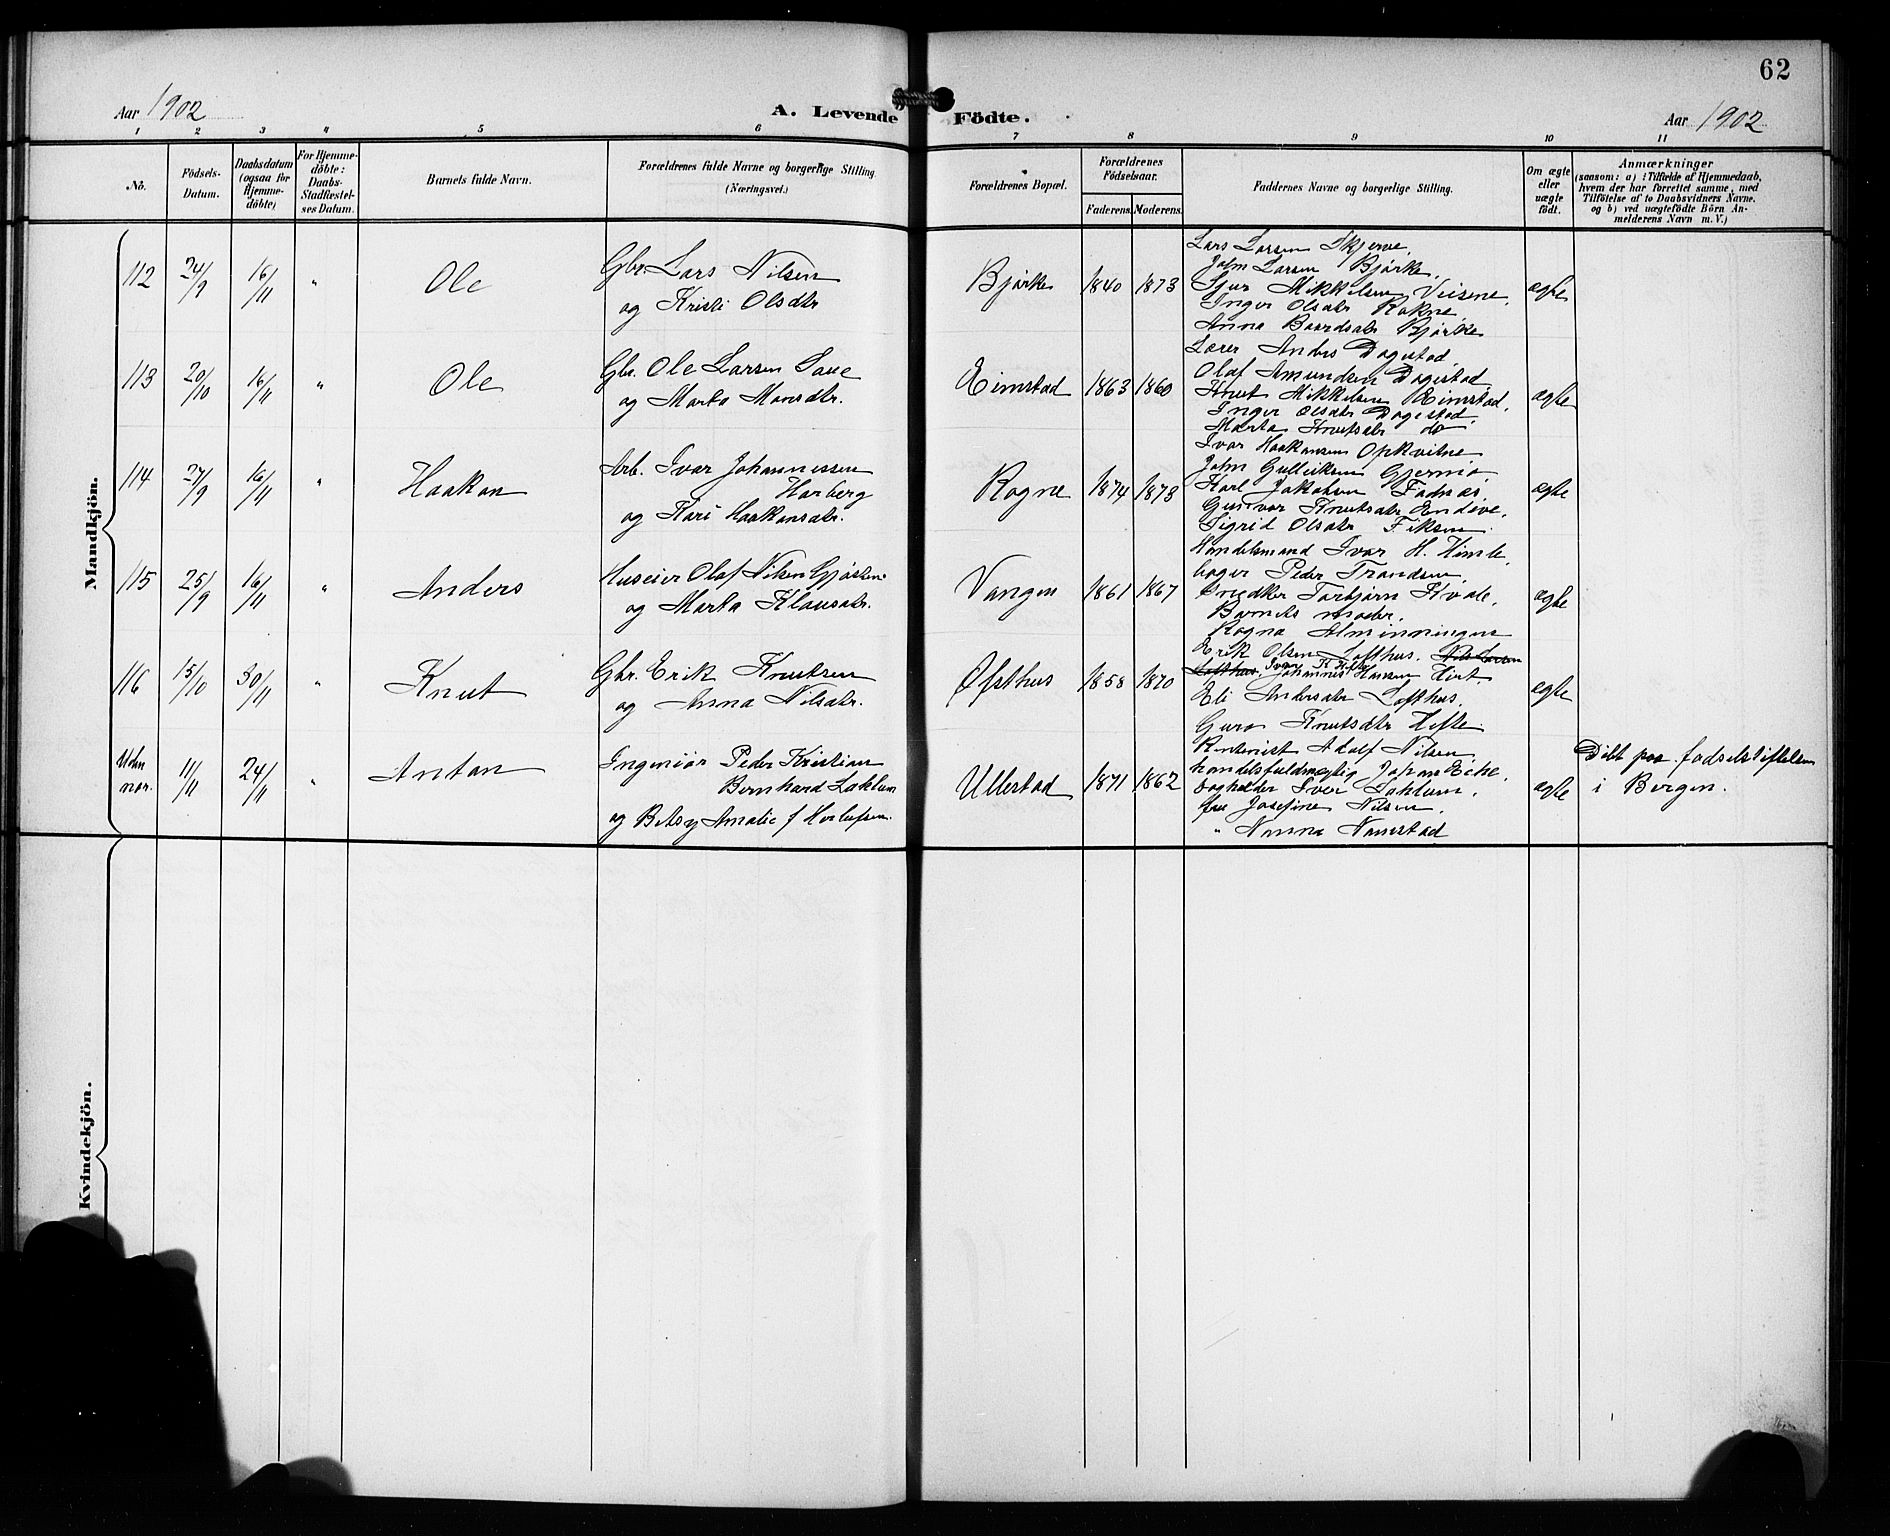 62
Aar 1902 A. Levende Födte. Aar 1902
1 2 3 4 5 6 7 8 9 10 11
No.
Födsels-
Datum.
Daabsdatum
(ogsaa for
Hjemme-
döbte)
For Hjemme-
döbte:
Daabs-
Stadfæstel-
ses Datum.
Barnets fulde Navn.
Forældrenes fulde Navne og borgerlige Stilling
(Næringsvei.)
Forældrenes Bopæl.
Forældrenes
Födselsaar.
Faderens. Moderens.
Faddernes Navne og borgerlige Stilling.
Om ægte
eller
uægte
født.
Anmærkninger
(saasom: a) i Tilfælde af Hjemmedaab,
hvem der har forrettet samme, med
Tilföielse af to Daabsvidners Navne.
og b) ved uægtefödte Börn An-
melderens Navn m. V.)
Mandkjön.
112 24/9 16/11 " Ole
Gbr. Lars Nilsen
og Kristi Olsdtr
Bjørke 1840 1873
Lars Larsen Skjerve,
John Larsen Bjørke,
Sjur Mikkelsen Veisene,
Inger Olsdtr Rokne,
Anna Baardsdtr Bjørke
ægte
113 20/10 16/11 " Ole
Gbr. Ole Larsen Saue
og Marta Monsdtr.
Eimstad 1863 1860
Lærer Anders Dagestad,
Olaf Amundsen Dagestad,
Knut Mikkelsen Eimstad,
Inger Olsdtr Dagestad,
Marta Knutsdtr do
ægte
114 27/9 16/11 " Haakon
Arb. Ivar Johannessen
Horberg
og Kari Haakonsdtr.
Rogne 1874 1873
Ivar Haakonsen Opkvitne
John Gulleiksen
Karl Jakobsen Fadnes,
Gunvor Knutsdtr Endeve,
Sigrid Olsdtr
ægte
115 25/9 16/11 " Anders
Huseier Olaf Nilsen
og Marta Klausdtr.
Vangen 1861 1867
Handelsmand Ivar H. Himle,
bager Peder Trondsen,
Snedker Torbjørn Kvale,
Barnets moder,
Ragna Almenningen
ægte
116 15/10 30/11 " Knut
Gbr. Erik Knutsen
og Anna Nilsdtr.
Ofsthus 1858 1870
Erik Olsen Lofthus. Nils Larsen
Lofthus, Ivar K Hefte Johannes Hansen
Eli Andersdtr Lofthus,
Guro Knutsdtr Hefte
ægte
Uden
nor. 11/11 24/11 " Anton
Ingeniør Peder Kristian
Bernhard Laklum
og Betsy Amalie f
Ullestad 1871 1862
Adolf Nilsen,
handelsfuldmægtig Johan
bogholder Iver
fru Josefine Nilsen,
" Nanna
ægte
Døbt paa fødselstiftelsen
i Bergen.
Kvindekjön.